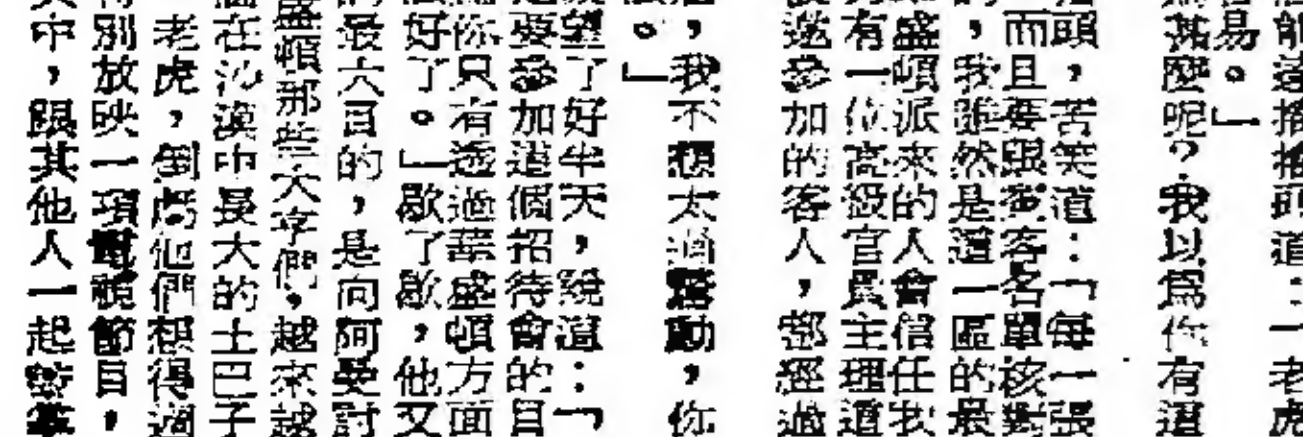 搖搖頭道：「老虎
易。」
甚麼呢？我以爲你有這
頭，苦笑道：「每一張
而且要跟賓客名單核對
，我雖然是這一區的最
盛頓派來的人會信任我
有一位高級官員主理這
邀參加的客人，都經過
，我不想太過驚動，你
。」
望了好半天，說道：「
要參加這個招待會的目
你只有透過華盛頓方面
好了。」歇了歇，他又
最大目的，是向阿曼討
盛頓那些大亨們，越來越
在沙漠中長大的土巴子
老虎，倒虧他們想得過
別放映一項電視節目，
中，跟其他人一起鼓掌